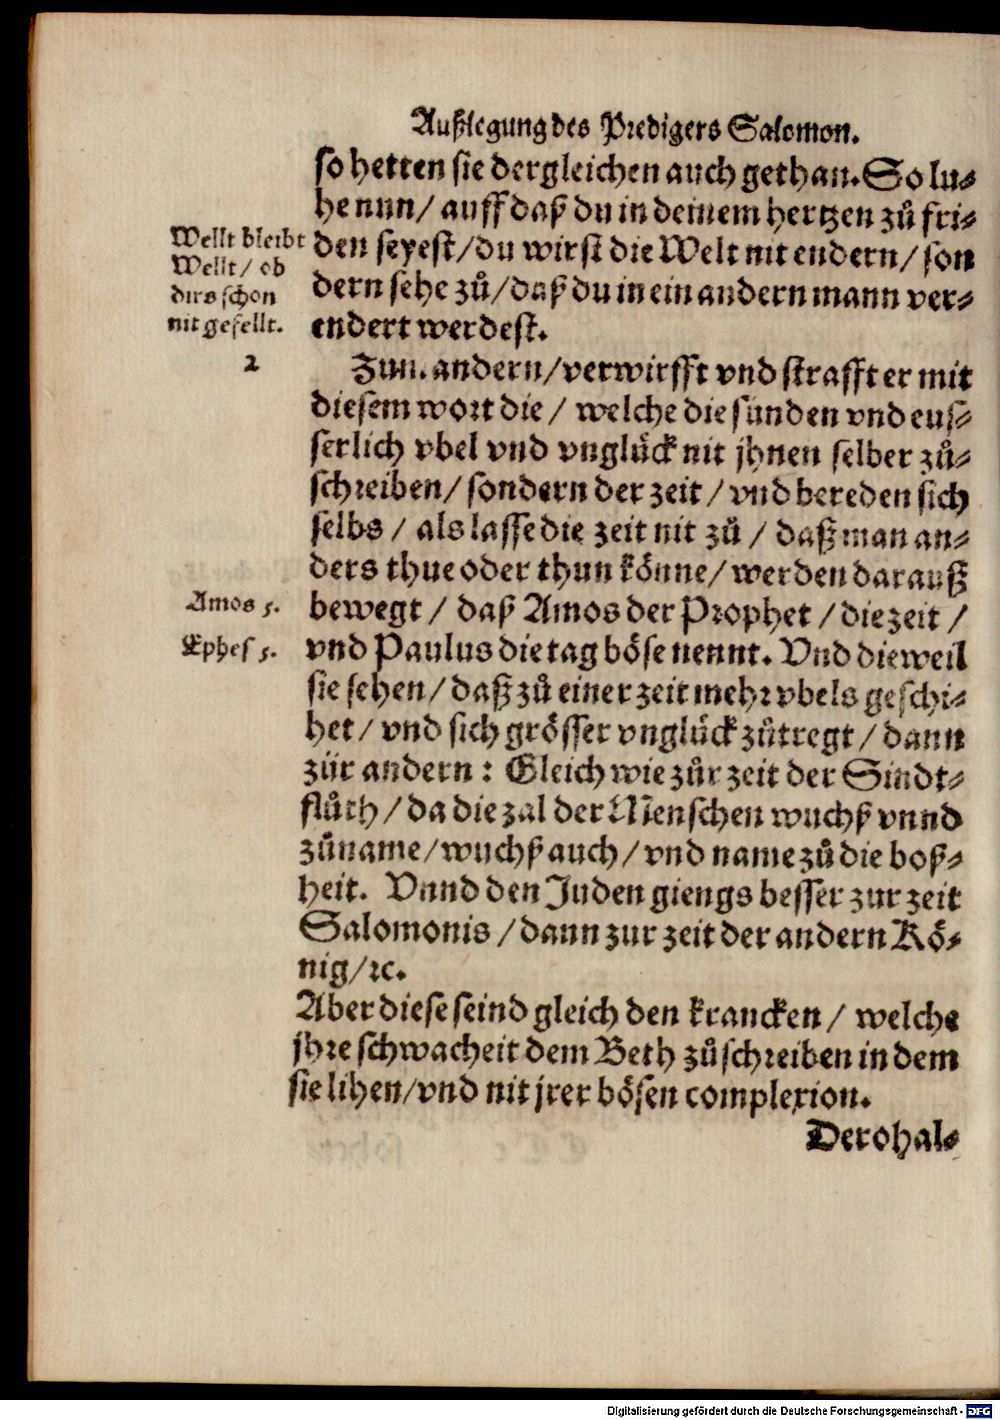 Außlegung des Predigers Salomon.
so hetten sie dergleichen auch gethan. So lu-
he nun / auff daß du in deinem hertzen zů fri-
den seyest / du wirst die Welt nit endern / son
dern sehe zů / daß du in ein andern mann ver-
endert werdest.
Wellt bleibt
Wellt / ob
dirs schon
nit gefellt.
2
Zum andern / verwirfft vnd strafft er mit
diesem wort die / welche die sünden vnd eus-
serlich vbel vnd vnglück nit jhnen selber zů-
schreiben / sondern der zeit / vnd bereden sich
selbs / als lasse die zeit nit zů / daß man an-
ders thue oder thun könne / werden darauß
bewegt / daß Amos der Prophet / die zeit /
vnd Paulus die tag böse nennt. Vnd dieweil
sie sehen / daß zů einer zeit mehr vbels geschi-
het / vnd sich grösser vnglück zůtregt / dann
zůr andern : Gleich wie zůr zeit der Sindt-
flůth / da die zal der Menschen wuchß vnnd
zůname / wuchß auch / vnd name zů die boß-
heit. Vnnd den Juden giengs besser zur zeit
Salomonis / dann zur zeit der andern Kö-
nig / ꝛc.
Amos 5.
Ephes 5.
Aber diese seind gleich den krancken / welche
jhre schwacheit dem Beth zů schreiben in dem
sie lihen / vnd nit jrer bösen complexion.
Derohal-
Digitalisierung gefördert durch die Deutsche Forschungsgemeinschaft - DFG